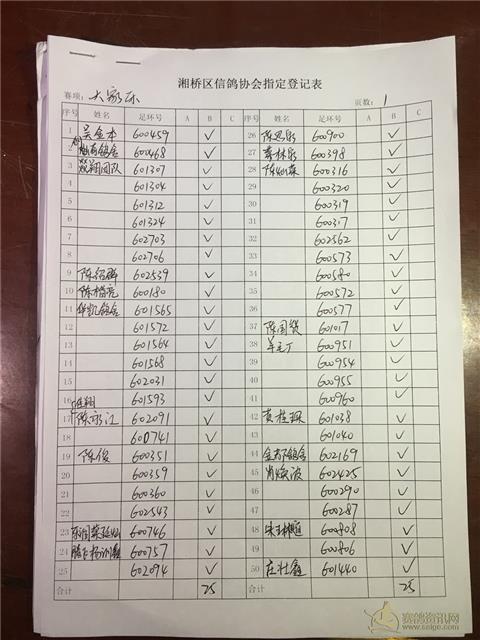 湘桥区信鸽协会指定登记表
赛项: 大家乐 页数: 1
序号 姓名 足环号 A B C 序号 姓名 足环号 A B C
1 吴金本 600459 ✓ 26 陈思泉 600900 ✓
2 鸽舍 600468 ✓ 27 蔡林泉 600398 ✓
3 双翔团队 601307 ✓ 28 陈灿荣 600316 ✓
4 601304 ✓ 29 600320 ✓
5 601312 ✓ 30 600319 ✓
6 601324 ✓ 31 600317 ✓
7 602703 ✓ 32 602562 ✓
8 602706 ✓ 33 600573 ✓
9 陈绍群 602539 ✓ 34 600580 ✓
10 陈楷亮 600180 ✓ 35 600572 ✓
11 华凯鸽舍 601565 ✓ 36 600577 ✓
12 601572 ✓ 37 陈国俊 601017 ✓
13 601564 ✓ 38 600951 ✓
14 601568 ✓ 39 600954 ✓
15 602031 ✓ 40 600955 ✓
16 601593 ✓ 41 600960 ✓
17 陈永江 602091 ✓ 42 黄桂琛 601038 ✓
18 600741 ✓ 43 601040 ✓
19 陈俊 600351 ✓ 44 金都鸽舍 602169 ✓
20 600359 ✓ 45 肖焕波 602425 ✓
21 600360 ✓ 46 600290 ✓
22 602543 ✓ 47 600287 ✓
23 600746 ✓ 48 600808 ✓
24 600757 ✓ 49 600806 ✓
25 602094 ✓ 50 庄壮鑫 601440 ✓
合计 25 合计 25
赛鸽资讯网
www.saige.com